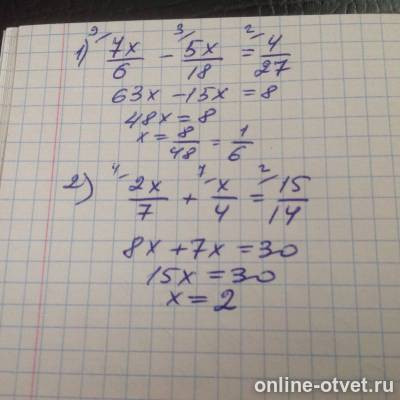 1) ⁹⁄7x/6 - ³⁄5x/18 = ²⁄4/27
63x - 15x = 8
48x = 8
x = 8/48 = 1/6
2) ⁴⁄2x/7 + ⁷⁄x/4 = ²⁄15/14
8x + 7x = 30
15x = 30
x = 2
online-otvet.ru